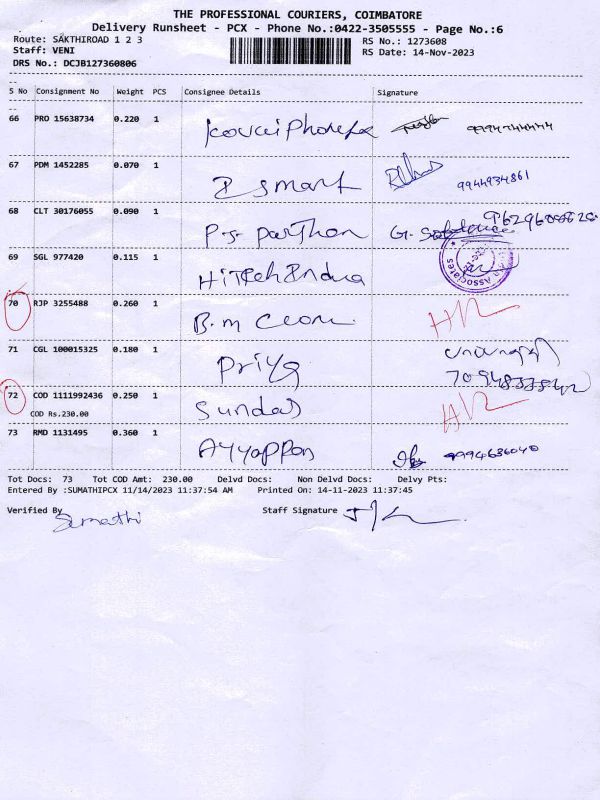 THE PROFESSIONAL COURIERS, COIMBATORE
Delivery Runsheet - PCX - Phone No.:0422-3505555 - Page No.:6
Route: SAKTHIROAD 1 2 3
RS No.: 1273608
Staff: VENI
RS Date: 14-Nov-2023
DRS No.: DCJB127360806
S No Consignment No Weight PCS Consignee Details Signature
66 PRO 15638734 0.220 1
67 PDM 1452285 0.070 1 smart 9944934861
68 CLT 30176055 0.090 1 P.S. Parthan G.
69 SGL 977420 0.115 1 Hitech India Associates
70 RJP 3255488 0.260 1 B.m
71 CGL 100015325 0.180 1 Priya
72 COD 1111992436 0.250 1 Sundar
COD Rs.230.00
73 RMD 1131495 0.360 1 Ayyappan 9994686040
Tot Docs: 73 Tot COD Amt: 230.00 Delvd Docs: Non Delvd Docs: Delvy Pts:
Entered By :SUMATHIPCX 11/14/2023 11:37:54 AM Printed On: 14-11-2023 11:37:45
Verified By Sumathi Staff Signature